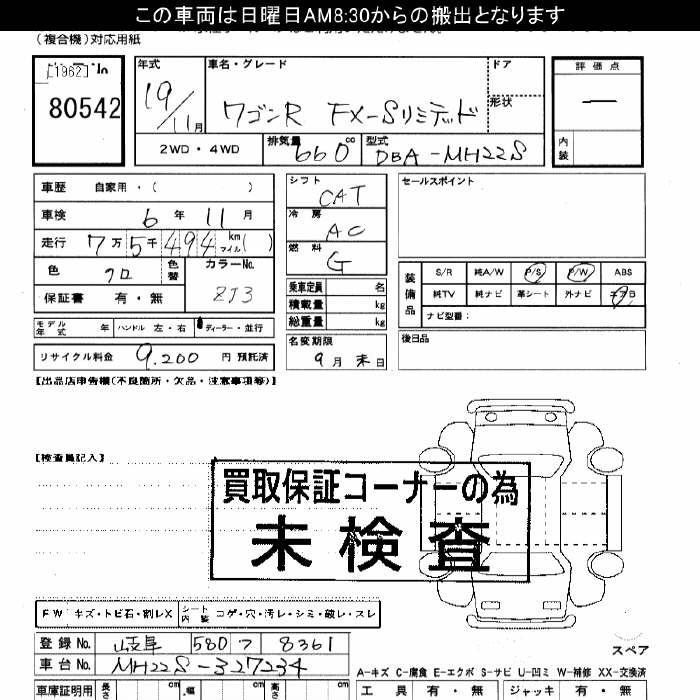 この車両は日曜日AM8:30からの搬出となります
(複合機)対応用紙
80542
年式
19/11月
車名・グレード
ワゴンR FX-Sリミテッド
ドア
形状
評価点
内装
2WD・4WD
排気量 660 cc
型式 DBA-MH22S
車歴 自家用・( )
車検 6年 11月
走行 7万5千494km マイル( )
色 クロ
色替
カラーNo. ZJ3
保証書 有・無
シフト CAT
冷房 AC
燃料 G
乗車定員 名
積載量 kg
総重量 kg
セールスポイント
装備品
S/R 純A/W P/S P/W ABS
純TV 純ナビ 革シート 外ナビ エアB
ナビ型番:
モデル年式 年 ハンドル 左・右 ディーラー・並行
名変期限 9月末日
後日品
リサイクル料金 9.200 円 預託済
【出品店申告欄(不良箇所・欠品・注意事項等)】
【検査員記入】
買取保証コーナーの為
未検査
FW キズ・トビ石・割レX
シート内装 コゲ・穴・汚レ・シミ・破レ・スレ
登録No. 岐阜 580 フ 8361
車台No. MH22S-327234
スペア
A-キズ C-腐食 E-エクボ S-サビ U-凹ミ W-補修 XX-交換済
車庫証明用 長さ cm 幅 cm 高さ cm
工具 有・無 ジャッキ 有・無